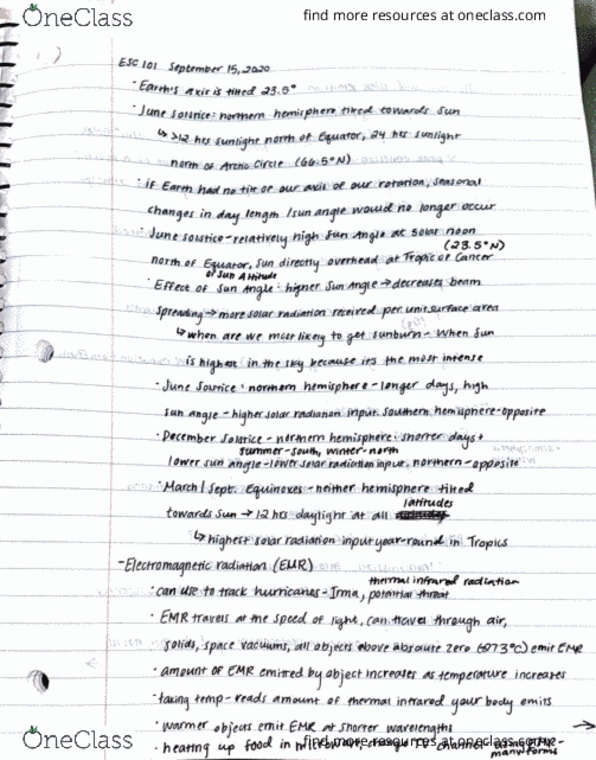 OneClass
find more resources at oneclass.com
ESC 101 September 15, 2020
· Earth's axis is tilted 23.5°
· June solstice: northern hemisphere tilted towards sun
↳ >12 hrs sunlight north of Equator, 24 hrs sunlight
north of Arctic Circle (66.5°N)
· if Earth had no tilt of our axis of our rotation, seasonal
changes in day length / sun angle would no longer occur
· June solstice - relatively high Sun Angle at solar noon
(23.5°N)
north of Equator, Sun directly overhead at Tropic of Cancer
or Sun Altitude
· Effect of Sun Angle: higher Sun Angle → decreases beam
spreading → more solar radiation received per unit surface area
↳ when are we most likely to get sunburn - When Sun
is highest in the sky because it's the most intense
· June Solstice: northern hemisphere - longer days, high
sun angle - higher solar radiation input. Southern hemisphere - opposite
· December Solstice - northern hemisphere: shorter days +
summer - south, winter - north
lower sun angle - lower solar radiation input, northern - opposite
· March / Sept. Equinoxes - neither hemisphere tilted
latitudes
towards Sun → 12 hrs daylight at all
↳ highest solar radiation input year-round in Tropics
- Electromagnetic radiation (EMR)
thermal infrared radiation
· can use to track hurricanes - Irma, potential threat
· EMR travels at the speed of light, can travel through air,
solids, space vacuums, all objects above absolute zero (-273°C) emit EMR
· amount of EMR emitted by object increases as temperature increases
· taking temp - reads amount of thermal infrared your body emits
· warmer objects emit EMR at shorter wavelengths →
· heating up food in microwave, change TV channel using EMR -
many forms
OneClass
find more resources at oneclass.com